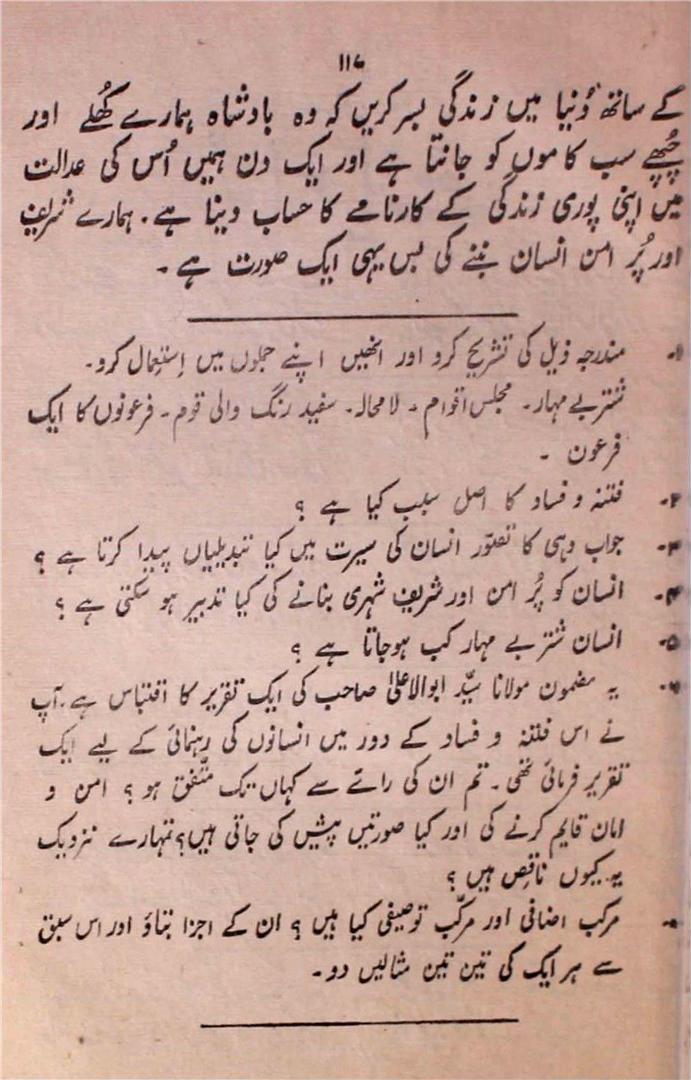 ۱۱۷
کے ساتھ دُنیا میں زندگی بسر کریں کہ وہ بادشاہ ہمارے کھُلے اور
چھُپے سب کاموں کو جانتا ہے اور ایک دن ہمیں اُس کی عدالت
میں اپنی پوری زندگی کے کارنامے کا حساب دینا ہے۔ ہمارے شریف
اور پُر امن انسان بننے کی بس یہی ایک صورت ہے۔
۱۔ مندرجہ ذیل کی تشریح کرو اور انھیں اپنے جملوں میں اِستعمال کرو۔
شتر بے مہار۔ مجلس اقوام۔ لامحالہ۔ سفید رنگ والی قوم۔ فرعونوں کا ایک
فرعون۔
۲۔ فتنہ و فساد کا اصل سبب کیا ہے؟
۳۔ جواب دہی کا تصوّر انسان کی سیرت میں کیا تبدیلیاں پیدا کرتا ہے؟
۴۔ انسان کو پُر امن اور شریف شہری بنانے کی کیا تدبیر ہو سکتی ہے؟
۵۔ انسان شتر بے مہار کب ہوجاتا ہے؟
۶۔ یہ مضمون مولانا سیّد ابوالاعلیٰ صاحب کی ایک تقریر کا اقتباس ہے۔ آپ
نے اس فتنہ و فساد کے دور میں انسانوں کی رہنمائی کے لیے ایک
تقریر فرمائی تھی۔ تم ان کی رائے سے کہاں تک متّفق ہو؟ امن و
امان قایم کرنے کی اور کیا صورتیں پیش کی جاتی ہیں؟ تمہارے نزدیک
یہ کیوں ناقِص ہیں؟
مرکب اضافی اور مرکّب توصیفی کیا ہیں؟ ان کے اجزا بتاؤ اور اس سبق
سے ہر ایک کی تین تین مثالیں دو۔